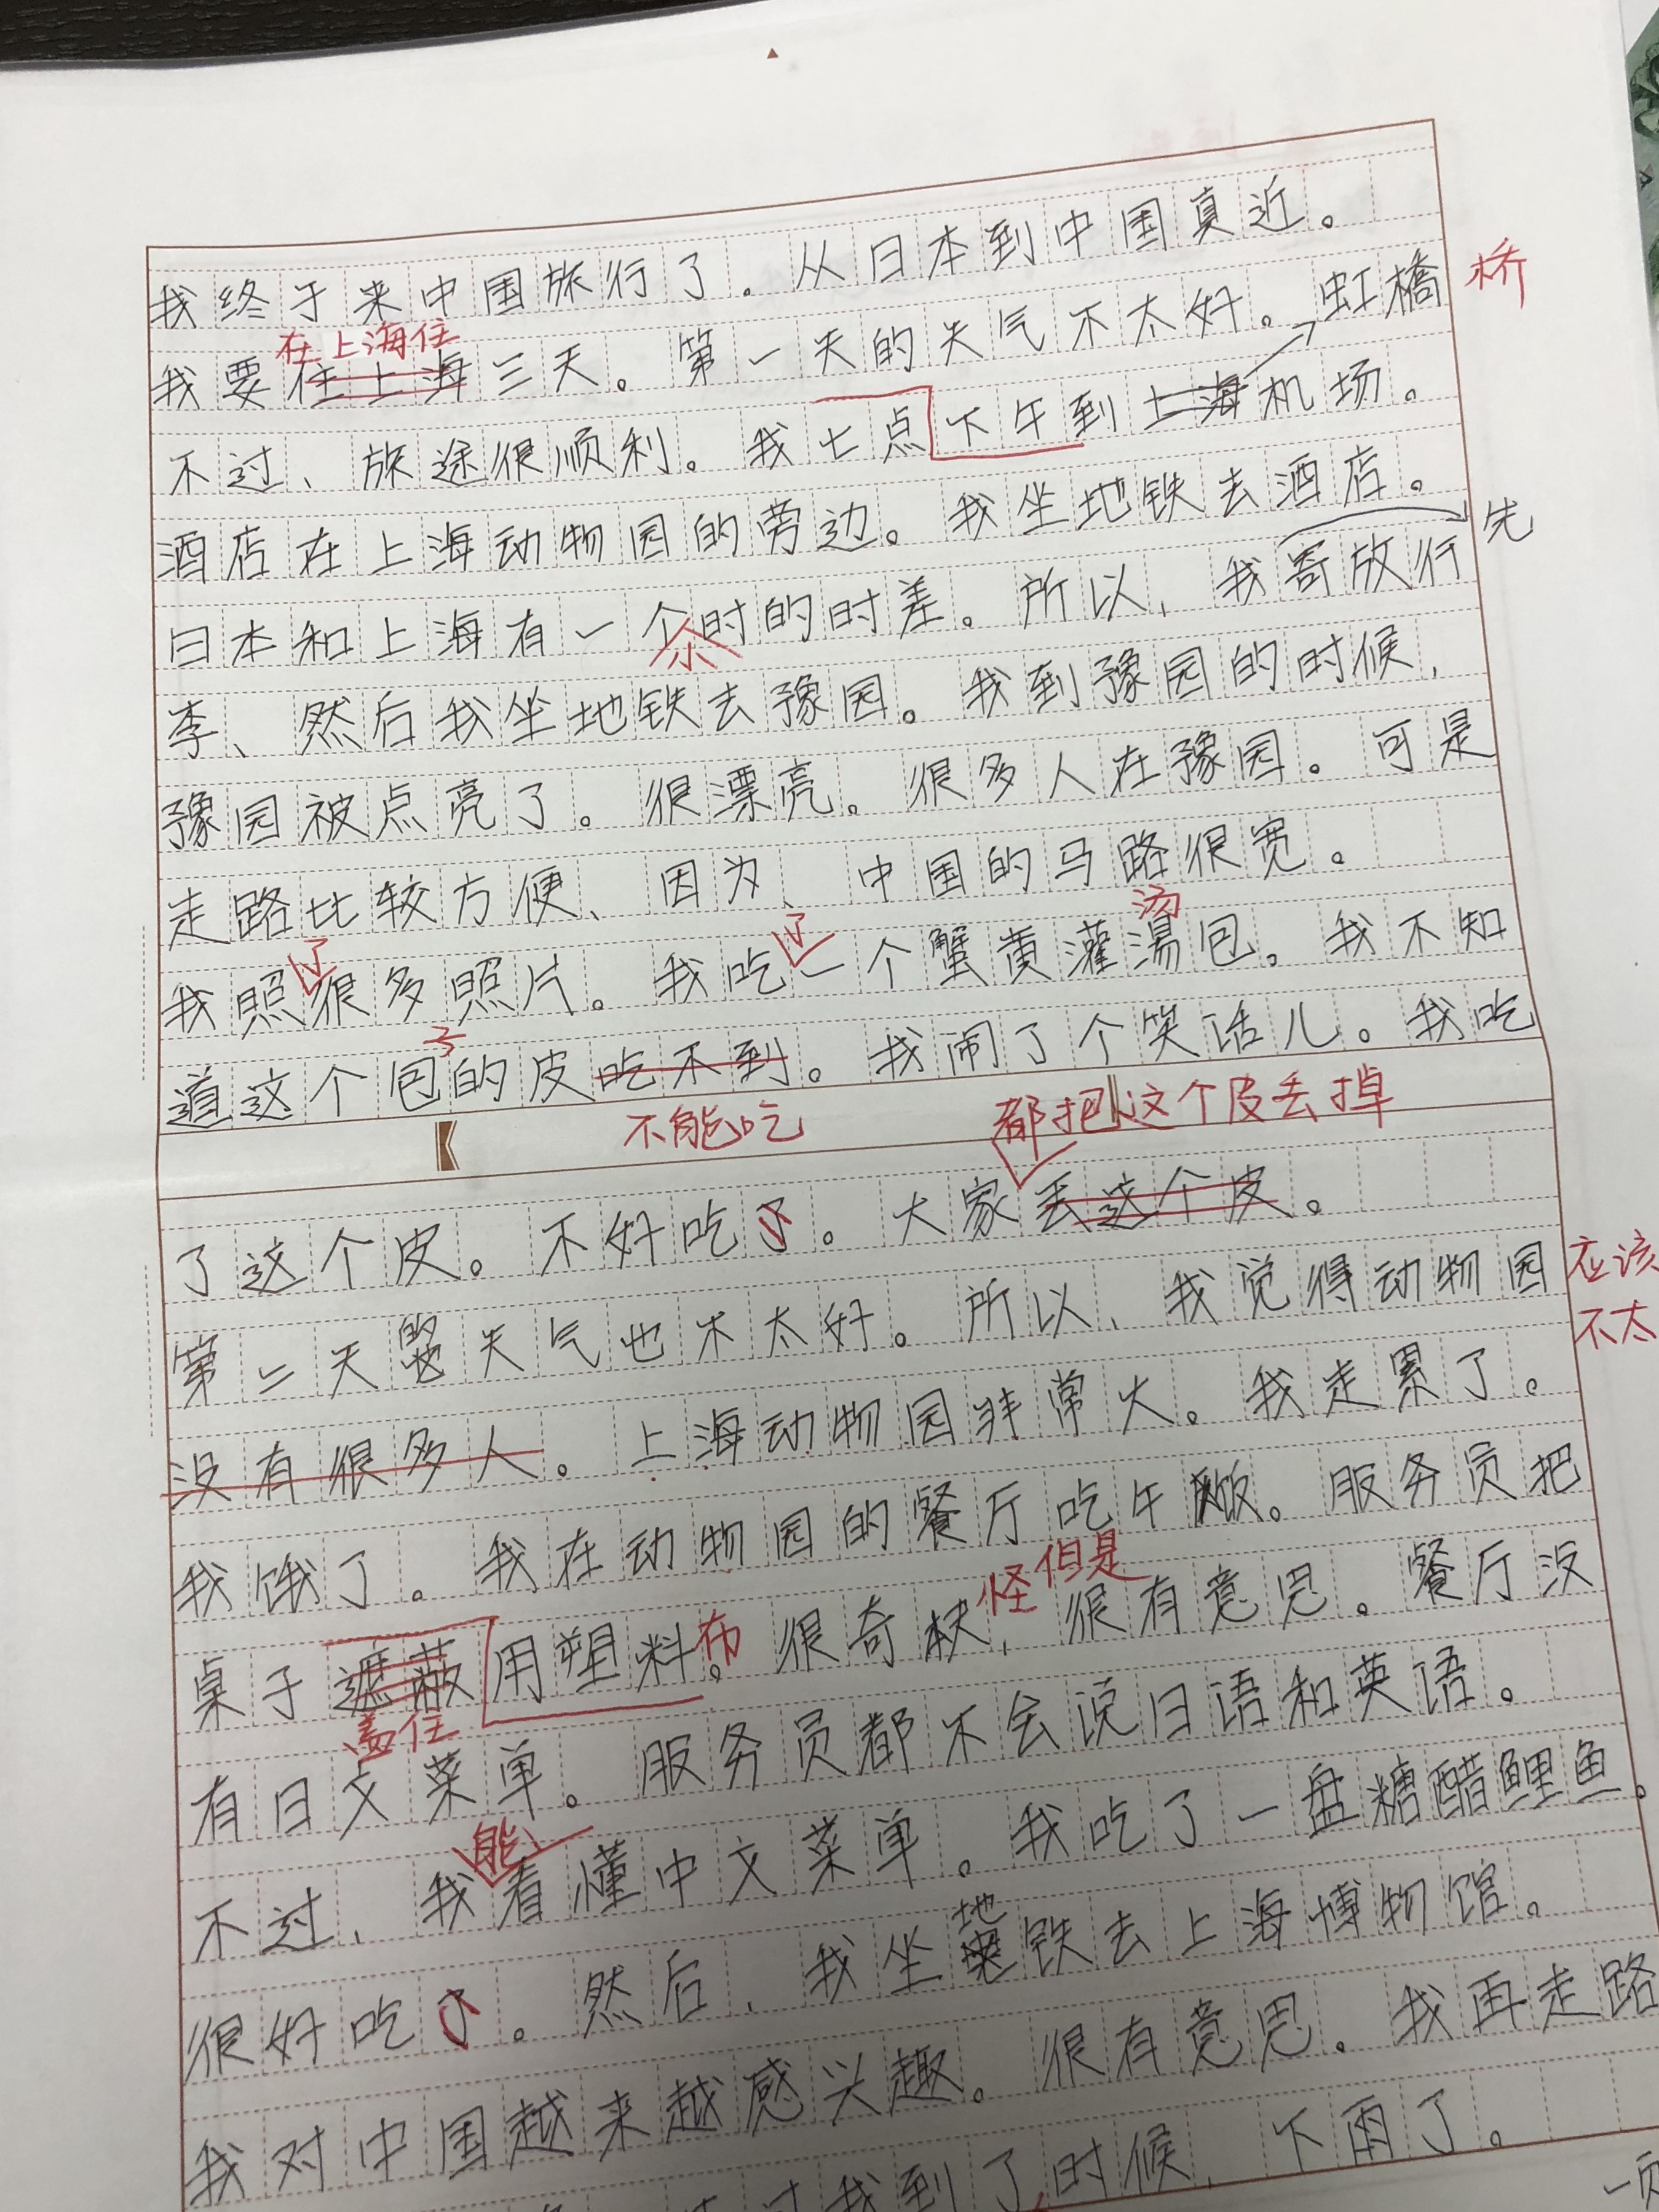 我终于来中国旅行了。从日本到中国真近。
在上海住
桥
我要住上海三天。第一天的天气不太好。虹橋
不过、旅途很顺利。我七点下午到上海机场。
酒店在上海动物园的旁边。我坐地铁去酒店。
先
日本和上海有一个时的时差。所以、我寄放行
小
李、然后我坐地铁去豫园。我到豫园的时候、
豫园被点亮了。很漂亮。很多人在豫园。可是
走路比较方便、因为、中国的马路很宽。
了
了
汤
我照很多照片。我吃一个蟹黄灌湯包。我不知
子
道这个包的皮吃不到。我闹了个笑话儿。我吃
不能吃
都把这个皮丢掉
了这个皮。不好吃了。大家丢这个皮。
第二天天气也不太好。所以、我觉得动物园
应该
不太
没有很多人。上海动物园非常大。我走累了。
我饿了。我在动物园的餐厅吃午饭。服务员把
怪但是
桌子遮蔽用塑料。很奇、很有意思。餐厅没
布
盖住
有日文菜单。服务员都不会说日语和英语。
能
不过、我看懂中文菜单。我吃了一盘糖醋鲤鱼。
地
很好吃了。然后、我坐铁去上海博物馆。
我对中国越来越感兴趣。很有意思。我再走路
我到了时候、下雨了。
一页